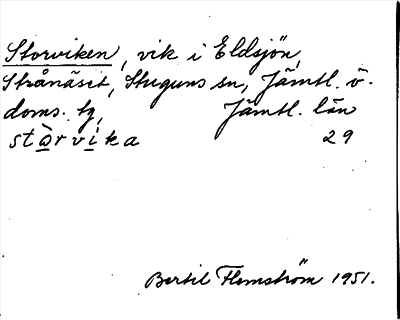 Storviken, vik i Eldsjön,
Strånäset, Stuguns sn, Jämtl. ö.
doms. tg, Jämtl. län
stòrvika 29
Bertil Flemström 1951.